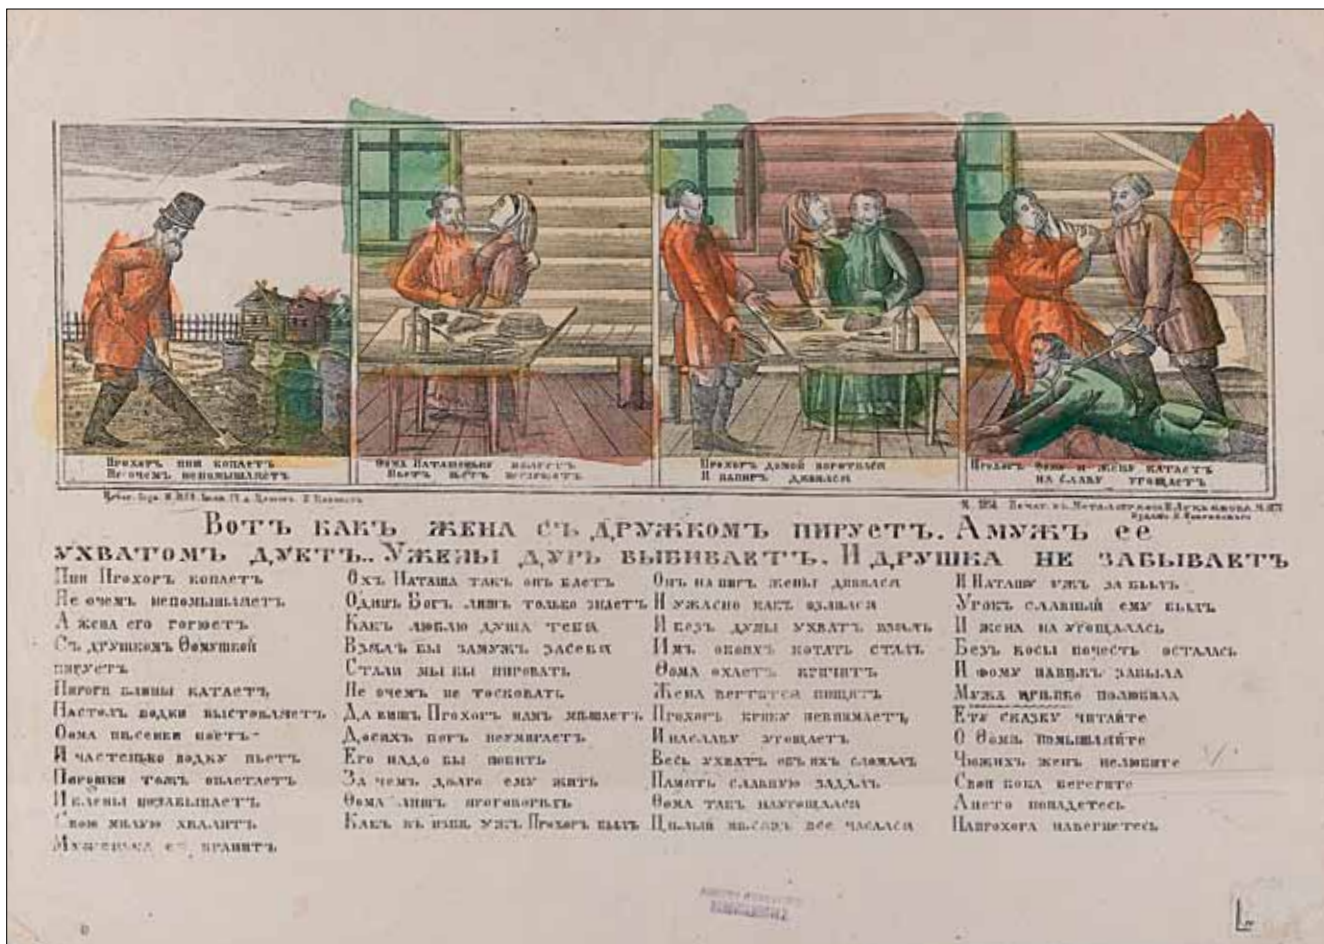 Прохоръ пни копаетъ
Не очемъ непомышляетъ
Фома Наташеньку
Пьетъ
Прохоръ домой воротился
И напиръ дивился
Прохоръ Фому и жену катаетъ
на славу угощаетъ
Вотъ какъ жена съ дружкомъ пируетъ. А мужъ ее
ухватомъ дуетъ.. Ужены дурь выбиваетъ. И друшка не забываетъ
Пни Прохоръ копаетъ
Не очемъ непомышляетъ
А жена его горюетъ
Съ друшкомъ Ѳомушкой
пируетъ
Пироги блины катаетъ
Настолъ водки выставляетъ
Ѳома писенки поетъ
И частенько водку пьетъ
Пирошки тожъ оплетаетъ
И блены незабываетъ
Свою милую хвалитъ
Муженька ее бранитъ
Охъ Наташа такъ онъ баетъ
Одинъ Богъ лишъ только знаетъ
Какъ люблю душа тебя
Взялъ бы замужъ засебя
Стали мы бы пировать
Не очемъ не тосковать
Да вишъ Прохоръ намъ мешаетъ
Досихъ поръ неумираетъ
Его надо бы побить
За чемъ долго ему жить
Ѳома лишъ проговорилъ
Какъ въ избы ужъ Прохоръ былъ
Онъ на пиръ жены дивился
И ужасно какъ озлился
И безъ думы ухват взялъ
Имъ обоих котать сталъ
Ѳома охаетъ кричитъ
Жена вертится пищитъ
Прохоръ крику невнимаетъ
И наславу угощаетъ
Весь ухватъ объ их сломалъ
Память славную задалъ
Ѳома такъ наугощался
Цылый месецъ все чесался
И Наташу ужъ за былъ
Урокъ славный ему былъ
И жена на угощалась
Безъ косы почесть осталась
И фому навикъ забыла
Мужа крепко полюбила
Ету сказку читайте
О Ѳоме помышляйте
Чюжихъ женъ нелюбите
Свои бока берегите
Ането попадетесь
Напрохора навернетесь